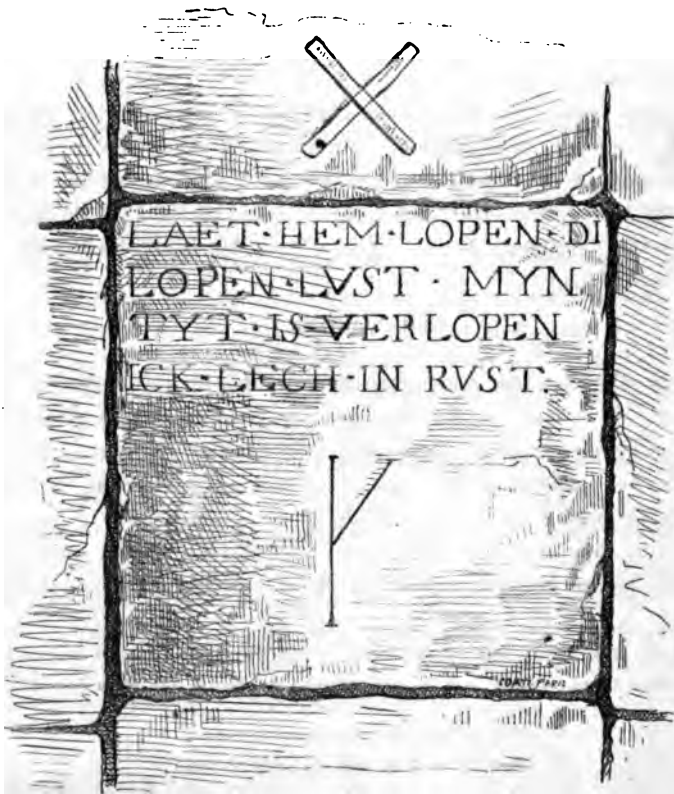 LAET·HEM·LOPEN·DI
LOPEN·LVST·MYN
TYT·IS·VERLOPEN
ICK·LECH·IN RVST.